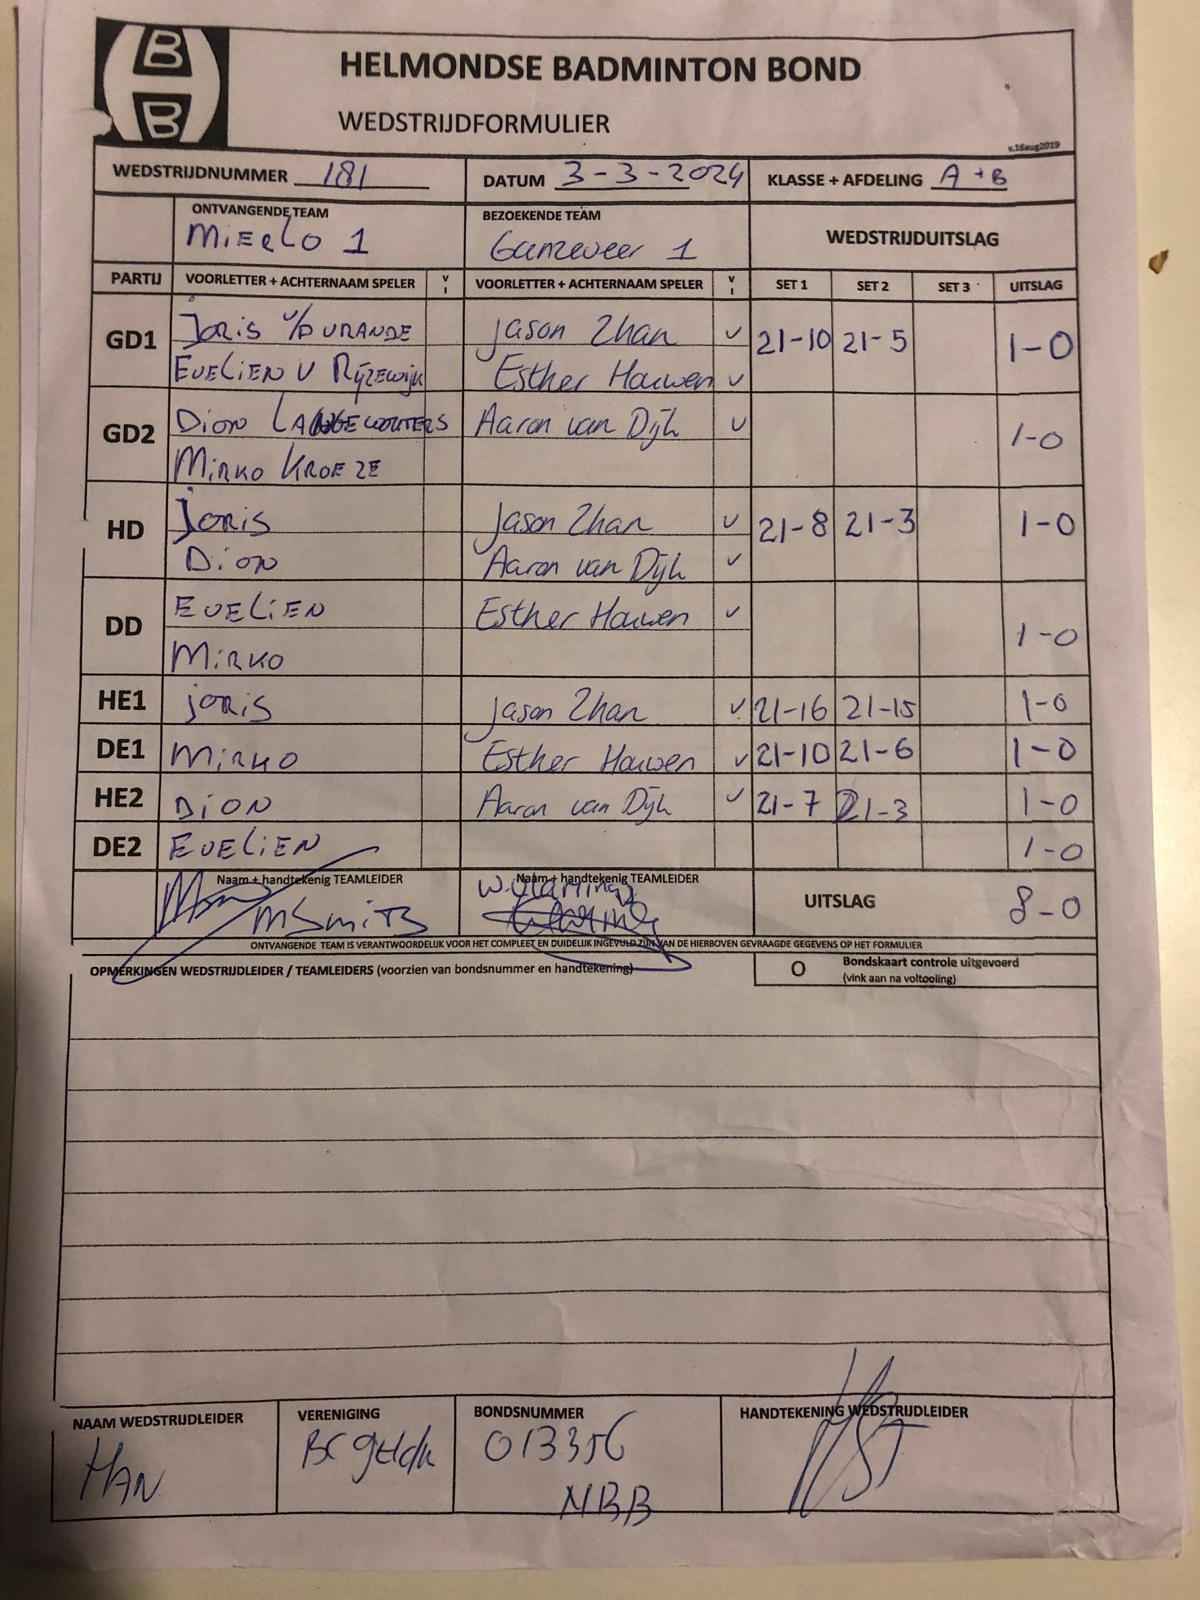 HELMONDSE BADMINTON BOND
WEDSTRIJDFORMULIER
v.16aug2019
WEDSTRIJDNUMMER 181 DATUM 3-3-2024 KLASSE + AFDELING A + B
ONTVANGENDE TEAM BEZOEKENDE TEAM WEDSTRIJDUITSLAG
MiERLO 1 Ganzeveer 1
PARTIJ VOORLETTER + ACHTERNAAM SPELER V I VOORLETTER + ACHTERNAAM SPELER V I SET 1 SET 2 SET 3 UITSLAG
GD1 Joris v/d VRANDE Jason Zhan v 21-10 21-5 1-0
EVELiEN V Rijzewijk Esther Houwen v
GD2 Dion LANGEWOUTERS Aaron van Dijk v 1-0
MiRKO KROEZE
HD Joris Jason Zhan v 21-8 21-3 1-0
Dion Aaron van Dijk v
DD EVELiEN Esther Houwen v 1-0
MiRKO
HE1 joris Jason Zhan v 21-16 21-15 1-0
DE1 MiRKO Esther Houwen v 21-10 21-6 1-0
HE2 DiON Aaron van Dijk v 21-7 21-3 1-0
DE2 EVELiEN 1-0
Naam + handtekenig TEAMLEIDER Naam + handtekenig TEAMLEIDER UITSLAG 8-0
MSmiTS
ONTVANGENDE TEAM IS VERANTWOORDELIJK VOOR HET COMPLEET EN DUIDELIJK INGEVULD ZIJN VAN DE HIERBOVEN GEVRAAGDE GEGEVENS OP HET FORMULIER
OPMERKINGEN WEDSTRIJDLEIDER / TEAMLEIDERS (voorzien van bondsnummer en handtekening) O Bondskaart controle uitgevoerd
(vink aan na voltooling)
NAAM WEDSTRIJDLEIDER VERENIGING BONDSNUMMER HANDTEKENING WEDSTRIJDLEIDER
HAN BC 013356
NBB